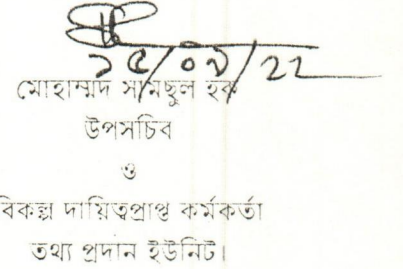 ১৫/০৯/22
মোহাম্মদ সামছুল হক
উপসচিব
ও
বিকল্প দায়িত্বপ্রাপ্ত কর্মকর্তা
তথ্য প্রদান ইউনিট।